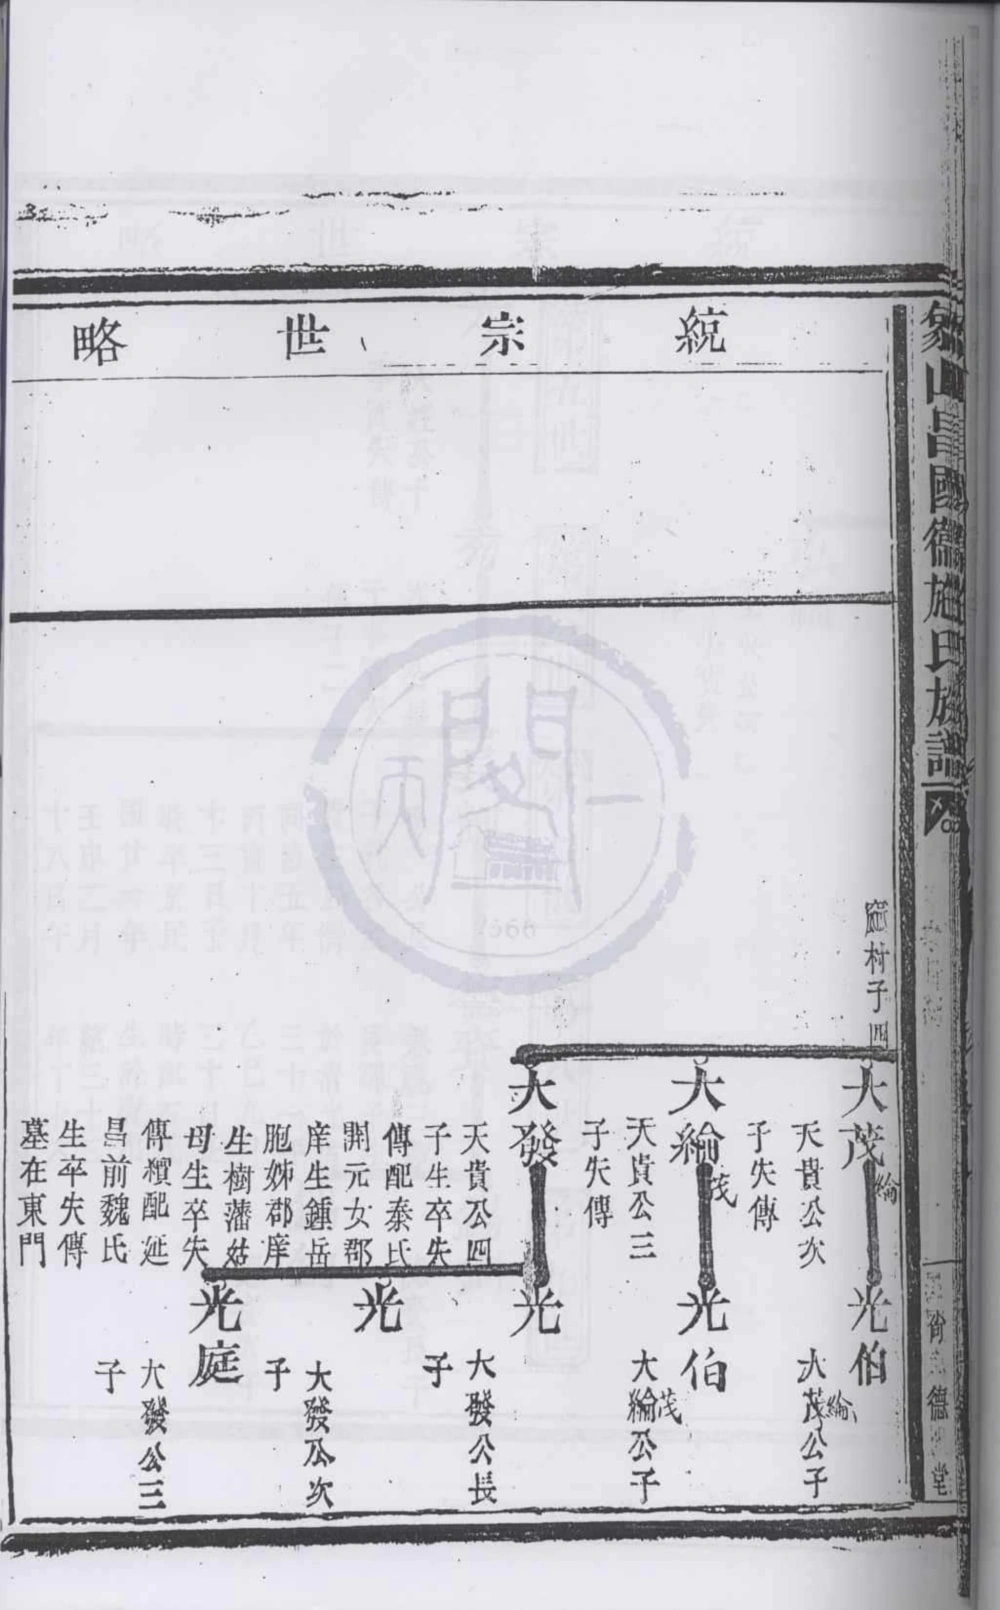 象山昌國衞施氏族譜
尙德堂
統宗世略
子四
大茂
綸
天貴公次
子失傳
大綸
茂
天貴公三
子失傳
大發
天貴公四
子生卒失
傳配泰氏
開元女郡
庠生鍾岳
胞姊郡庠
生樹藩姑
母生卒失
傳繼配延
昌前魏氏
生卒失傳
墓在東門
光伯
大茂公子
綸
光伯
大綸公子
茂
光
大發公長
子
光
大發公次
子
光庭
大發公三
子
天一閣
1566